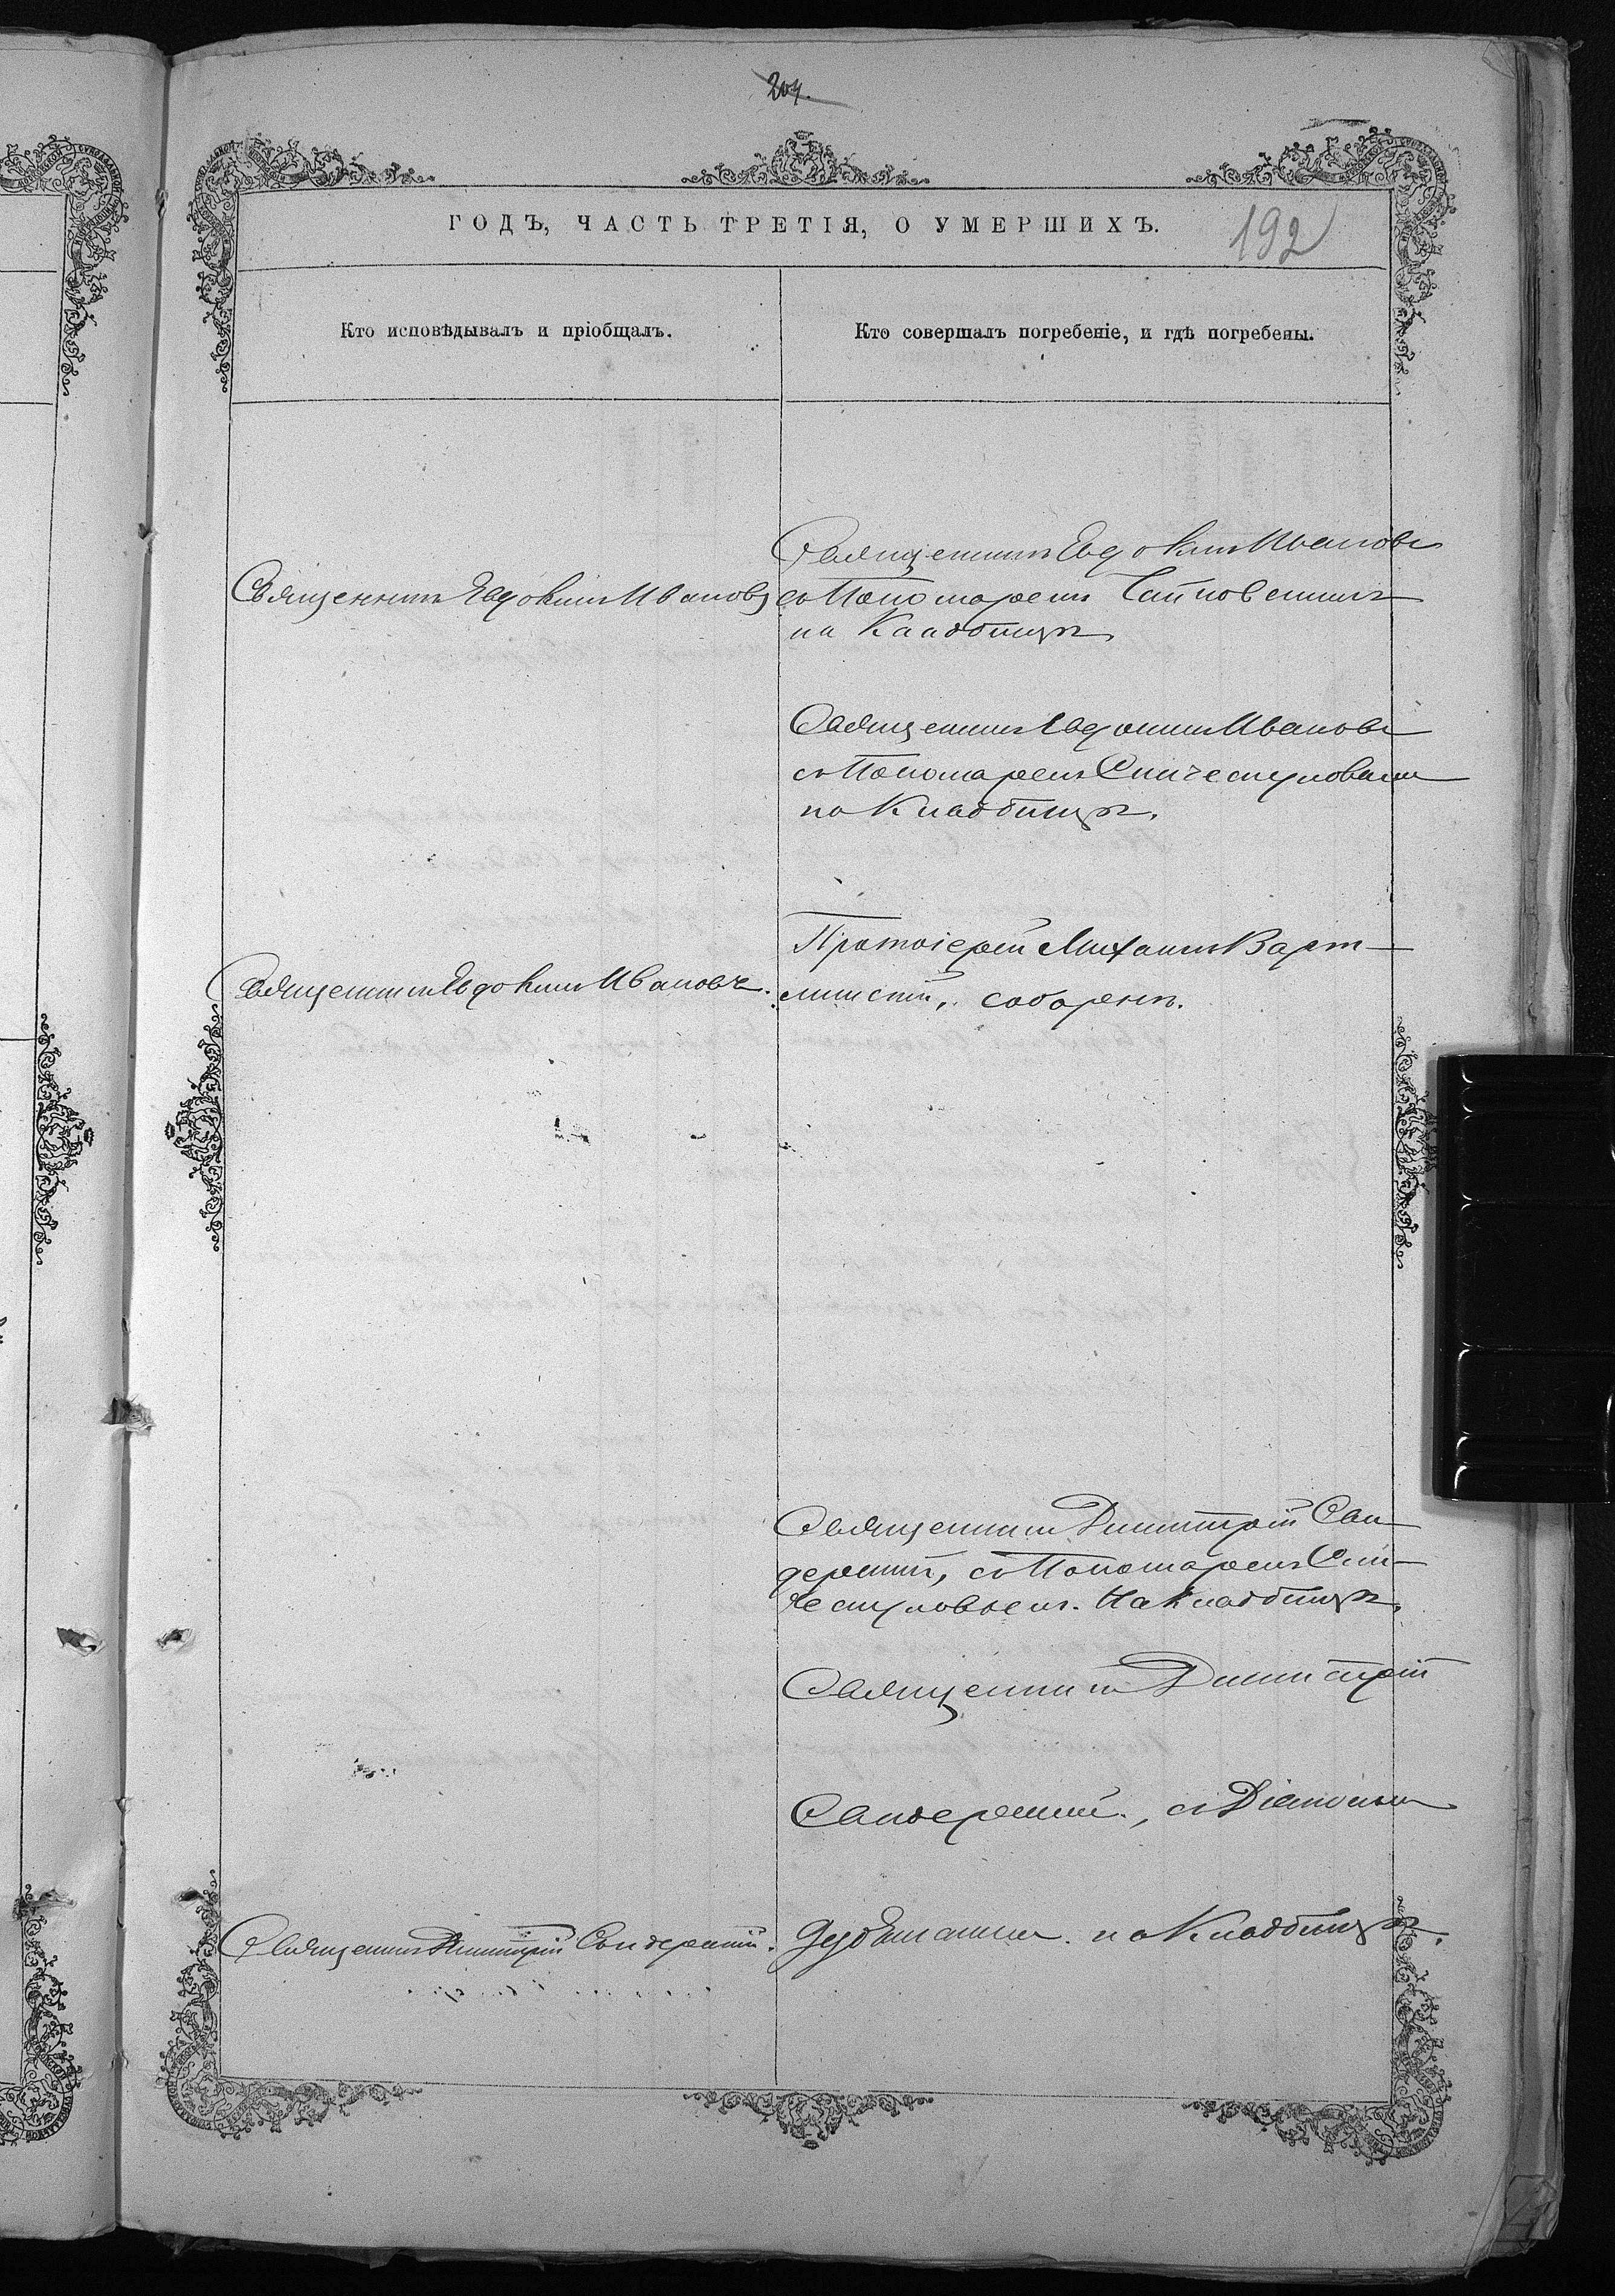 204.
ГОДЪ, ЧАСТЬ ТРЕТІЯ, О УМЕРШИХЪ.
192
Кто исповѣдывалъ и пріобщалъ.
Кто совершалъ погребеніе, и гдѣ погребены.
Священникъ Евдокимъ Ивановъ
Священникъ Евдокимъ Ивановъ
съ Пономаремъ
на Кладбищѣ.
Священникъ Евдокимъ Ивановъ
съ Пономаремъ
на Кладбищѣ.
Священникъ Евдокимъ Ивановъ.
Протоіерей Михаилъ
соборнѣ.
Священникъ Димитрій
съ Пономаремъ
На Кладбищѣ.
Священникъ Димитрій
съ Діакономъ
Священникъ Димитрій
на Кладбищѣ.